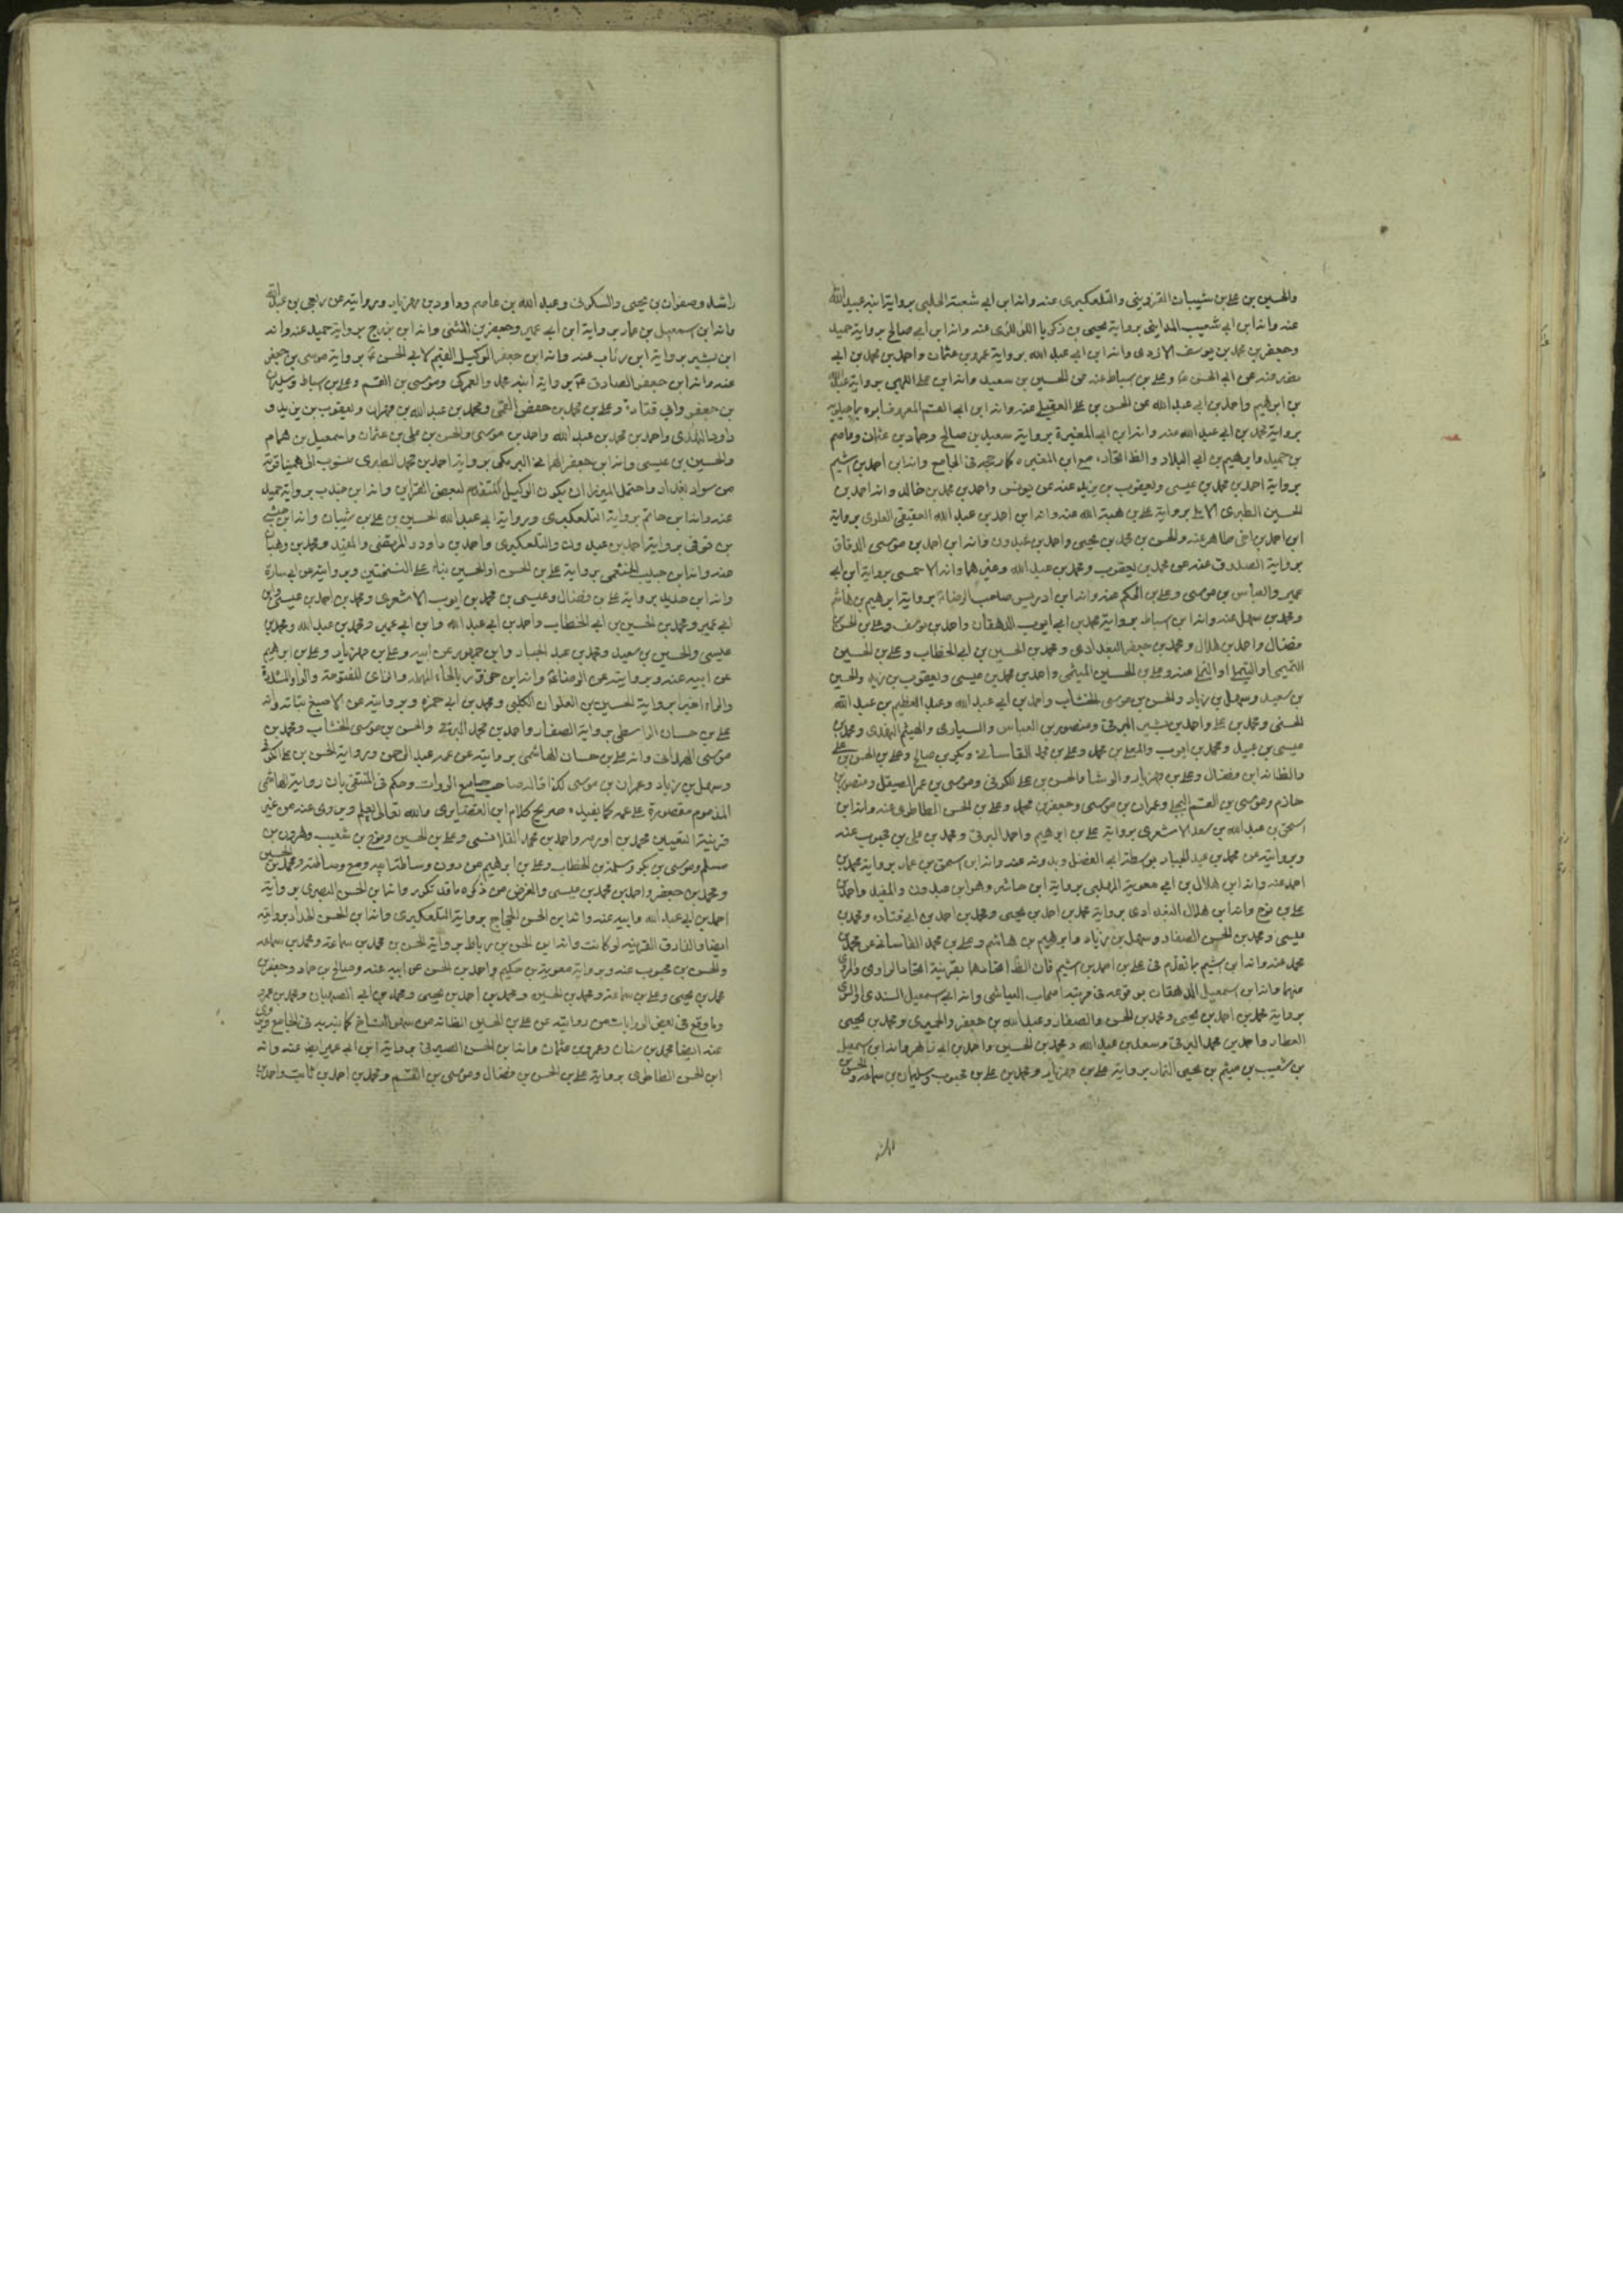 والحسين بن علي بن شيبان القزويني والتلعكبري عنه وانه ابن ابي شعبة الحلبي برواية ابنه عبيد الله
عنه وانه ابن ابي شعيب المدايني برواية يحيى بن زكريا اللؤلؤى عنه وانه ابن ابي صالح برواية حميد
وجعفر بن محمد بن يوسف الازدى وانه ابن ابي عبد الله برواية عمرو بن عثمان واحمد بن محمد بن ابي
نصر عنه عن ابي الحسن ع وعلي بن اسباط عنه عن الحسين بن سعيد وانه ابن علي اللهبي برواية عبد الله
بن ابرهيم واحمد بن ابي عبد الله عن الحسن بن علي العقيلي عنه وانه ابن ابي القسم
برواية محمد بن ابي عبد الله عنه وانه ابن ابي المغيرة برواية سعيد بن صالح وحماد بن عثمان وعاصم
بن حميد وابرهيم بن ابي البلاد والظ اتحاده مع ابن المغيره كما رجحه في الجامع وانه ابن احمد بن اشيم
برواية احمد بن محمد بن عيسى ويعقوب بن يزيد عنه عن يونس واحمد بن محمد بن خالد وانه احمد بن
الحسين الطبرى الاملي برواية علي بن هبة الله عنه وانه ابن احمد بن عبد الله العقيقي العلوى برواية
ابن احمد بن اخى طاهر عنه والحسن بن محمد بن يحيى واحمد بن عبدون وانه ابن احمد بن موسى الدقاق
برواية الصدوق عنه عن محمد بن يعقوب ومحمد بن عبد الله وغيرهما وانه الاحمسى برواية ابن ابي
عمير والعباس بن موسى وعلي بن الحكم عنه وانه ابن ادريس صاحب الرضا ع برواية ابرهيم بن هاشم
ومحمد بن سهل عنه وانه ابن اسباط برواية محمد بن ابي ايوب الدهقان واحمد بن يوسف وعلي بن الحسن
فضال واحمد بن هلال ومحمد بن جعفر البغدادى ومحمد بن الحسين بن ابي الخطاب وعلي بن الحسين
التميمي او التيملي عنه وعلي بن الحسين الميثمي واحمد بن محمد بن عيسى ويعقوب بن يزيد والحسين
بن سعيد وسهل بن زياد والحسن بن موسى الخشاب واحمد بن ابي عبد الله وعبد العظيم بن عبد الله
الحسنى ومحمد بن علي واحمد بن بشير البرقى ومنصور بن العباس والسيارى والهيثم النهدى ومحمد بن
عيسى بن عبيد ومحمد بن ايوب والمعلى بن محمد وعلي بن محمد القاسانى وبكر بن صالح وعلي بن الحسن بن علي
والظ انه ابن فضال وعلي بن مهزيار والوشا والحسن بن علي الكوفى وموسى بن عمر الصيقل ومنصور بن
حازم وموسى بن القسم البجلي وعمران بن موسى وجعفر بن محمد وعلي بن الحسن الطاطرى عنه وانه ابن
اسحق بن عبد الله بن سعد الاشعرى برواية علي بن ابرهيم واحمد البرقى ومحمد بن علي بن محبوب عنه
وبروايته عن محمد بن عبد الجبار بوسطة ابي الفضل وبدونه عنه وانه ابن اسحق بن عمار برواية محمد بن
احمد عنه وانه ابن هلال بن ابي معوية المهلبى برواية ابن حاشر وهو ابن عبدون والمفيد واحمد بن
علي بن نوح وانه ابن هلال البغدادى برواية محمد بن احمد بن يحيى ومحمد بن احمد بن ابي قتاده ومحمد بن
عيسى ومحمد بن الحسن الصفار وسهل بن زياد وابرهيم بن هاشم وعلي بن محمد القاسانى عن محمد بن
محمد عنه وانه ابن اشيم ما تقدم فى علي بن احمد بن اشيم فان الظ اتحادهما بقرينة اتحاد الراوى والمروى
عنهما وانه ابن اسمعيل الدهقان بوقوعه فى مرتبة اصحاب العياشى وانه ابن اسمعيل السندى
برواية محمد بن احمد بن يحيى ومحمد بن الحسن والصفار وعبد الله بن جعفر والحميرى ومحمد بن يحيى
العطار واحمد بن محمد البرقى وسعد بن عبد الله ومحمد بن الحسين واحمد بن ابي زاهر وانه ابن اسمعيل
بن شعيب بن ميثم بن يحيى التمار برواية علي بن مهزيار ومحمد بن علي بن محبوب وسليمان بن سماعه والحسن بن
راشد وصفوان بن يحيى والسكونى وعبد الله بن عاصم وداود بن مهزيار وبروايته عن ربعى بن عبد الله
وانه ابن اسمعيل بن عمار برواية ابن ابي عمير وجعفر بن المثنى وانه ابن بزرج برواية حميد عنه وانه
ابن بشير برواية ابن رئاب عنه وانه ابن جعفر الوكيل القيم لابي الحسن ع برواية موسى بن جعفر
عنه وانه ابن جعفر الصادق ع برواية ابنه محمد والعمركى وموسى بن القسم وعلي بن اسباط وسليمان
بن جعفر وابي قتادة وعلي بن محمد بن حفص القمى ومحمد بن عبد الله بن مهران ويعقوب بن يزيد و
داود النهدى واحمد بن محمد بن عبد الله واحمد بن موسى والحسن بن علي بن عثمان واسمعيل بن همام
والحسين بن عيسى وانه ابن جعفر الهمانى البرمكى برواية احمد بن محمد الطبرى منسوب الى همينا قرية
من سواد بغداد واحتمل الميرزا ان يكون الوكيل المتقدم لبعض القراين وانه ابن جندب برواية حميد
عنه وانه ابن حاتم برواية التلعكبرى وبرواية ابي عبد الله الحسين بن علي بن شيبان وانه ابن حبشى
بن قونى برواية احمد بن عبدون والتلعكبرى واحمد بن داود والمرتضى والمفيد ومحمد بن وهبان
عنه وانه ابن حبيب الخثعمى برواية علي بن الحسن او الحسين بناء على النسختين وبروايته عن ابي سارة
وانه ابن حديد برواية علي بن فضال وعيسى بن محمد بن ايوب الاشعرى ومحمد بن احمد بن عيسى وابن
ابي عمير ومحمد بن الحسين بن ابي الخطاب واحمد بن ابي عبد الله وابن ابي عمير ومحمد بن عبد الله ومحمد بن
عيسى والحسين بن سعيد ومحمد بن عبد الجبار وابن جمهور عن ابيه وعلي بن مهزيار وعلي بن ابرهيم
عن ابيه عنه وبروايته عن الرضا ع وانه ابن حزور بالحاء المهملة والزاى المفتوحة والواو المشددة
والراء اخيرا برواية الحسين بن العلوان الكلبى ومحمد بن ابي حمزه وبروايته عن الاصبغ بن نباته وانه
علي بن حسان الواسطى برواية الصفار واحمد بن محمد البرقى والحسن بن موسى الخشاب ومحمد بن
موسى الهمدانى وانه علي بن حسان الهاشمى بروايته عن عمه عبد الرحمن وبرواية الحسن بن علي الكوفى
وسهل بن زياد وعمران بن موسى لكذا قاله صاحب جامع الروات وحكم فى المنتقى بان رواية الهاشمى
المذموم مقصورة على عمه كما يفيده صريح كلام ابن الغضايرى والله تعالى يعلم ويروى عنه من غير
قرينة التعيين محمد بن اورمه واحمد بن محمد القلانسى وعلي بن الحسين ونوح بن شعيب وهرون بن
مسلم وموسى بن بكر وسلمة بن الخطاب وعلي بن ابرهيم من دون وساطة ابيه ومع وساطته ومحمد بن الحسين
ومحمد بن جعفر واحمد بن محمد بن عيسى والغرض من ذكره ما قد تكرر وانه ابن الحسن البصرى برواية
احمد بن ابي عبد الله وابيه عنه وانه ابن الحسن الحجاج برواية التلعكبرى وانه ابن الحسن الحداد بروايته
ايضا والفارق القرينه لو كانت وانه ابن الحسن بن رباط برواية الحسن بن محمد بن سماعة ومحمد بن سماعه
والحسن بن محبوب عنه وبرواية معوية بن حكيم واحمد بن الحسن عن ابيه عنه وصالح بن حماد وجعفر بن
محمد بن يحيى وعلي بن سماعة ومحمد بن الحسين ومحمد بن احمد بن يحيى ومحمد بن ابي الصهبان ومحمد بن عمرو
وما وقع فى بعض الروايات من روايته عن علي بن الحسين الظ انه من سهو النساخ كما نبه به فى الجامع ويروى
عنه ايضا محمد بن سنان وعمرو بن عثمان وانه ابن الحسن الصيرفى برواية ابن ابي عمير ايضا عنه وانه
ابن الحسن الطاطرى برواية علي بن الحسن بن فضال وموسى بن القسم ومحمد بن احمد بن ثابت واحمد بن